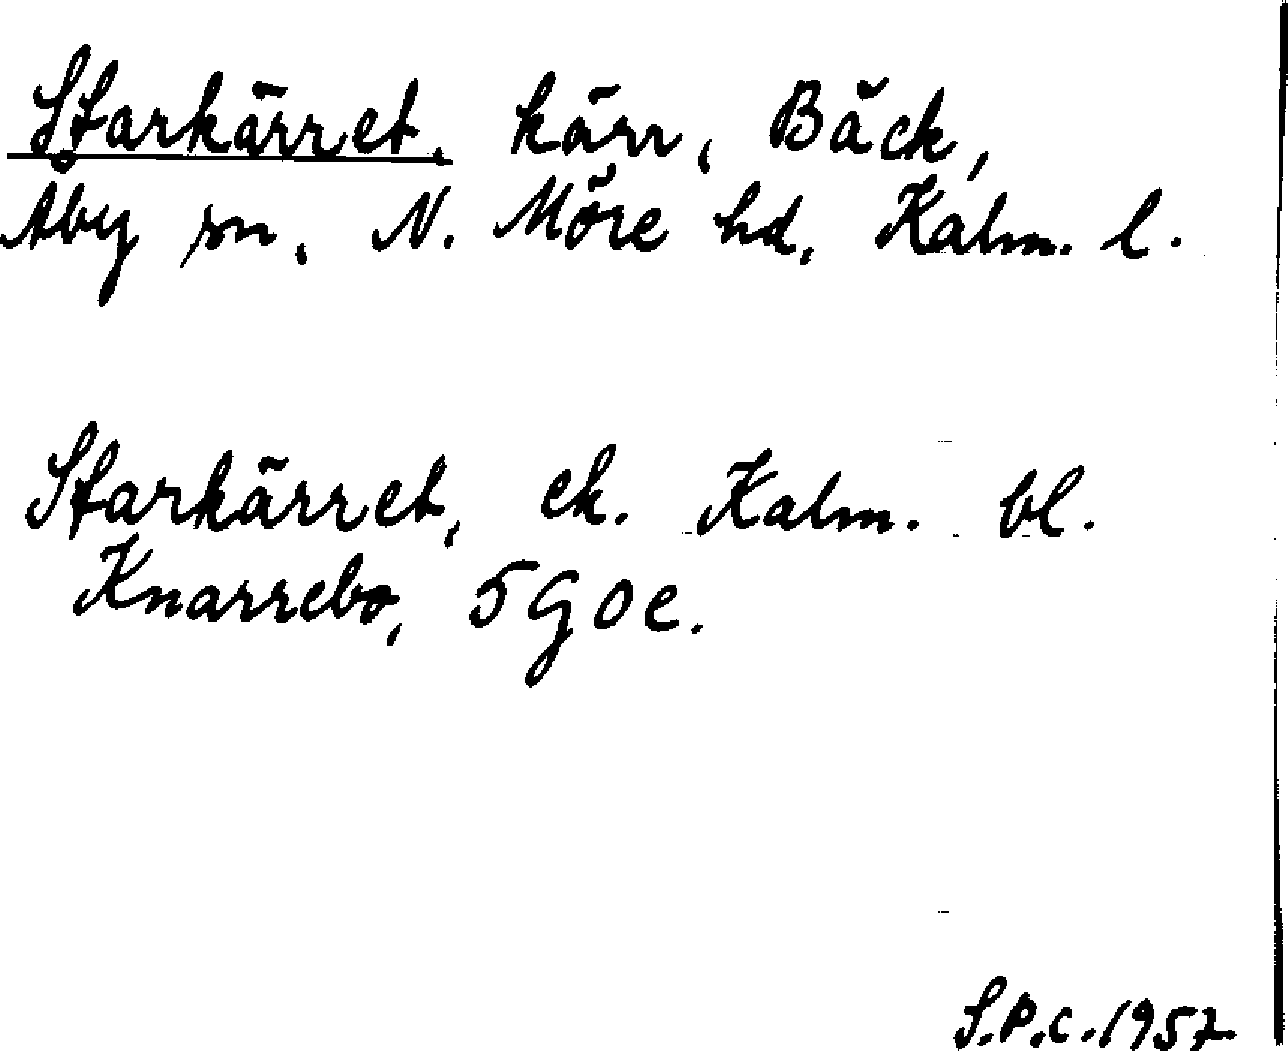 Starkärret, kärr, Bäck,
Åby sn, N. Möre hd, Kalm. l.
Starkärret, ek. Kalm. bl.
Knarrebo, 5 G 0 e.
S.P.C. 1957